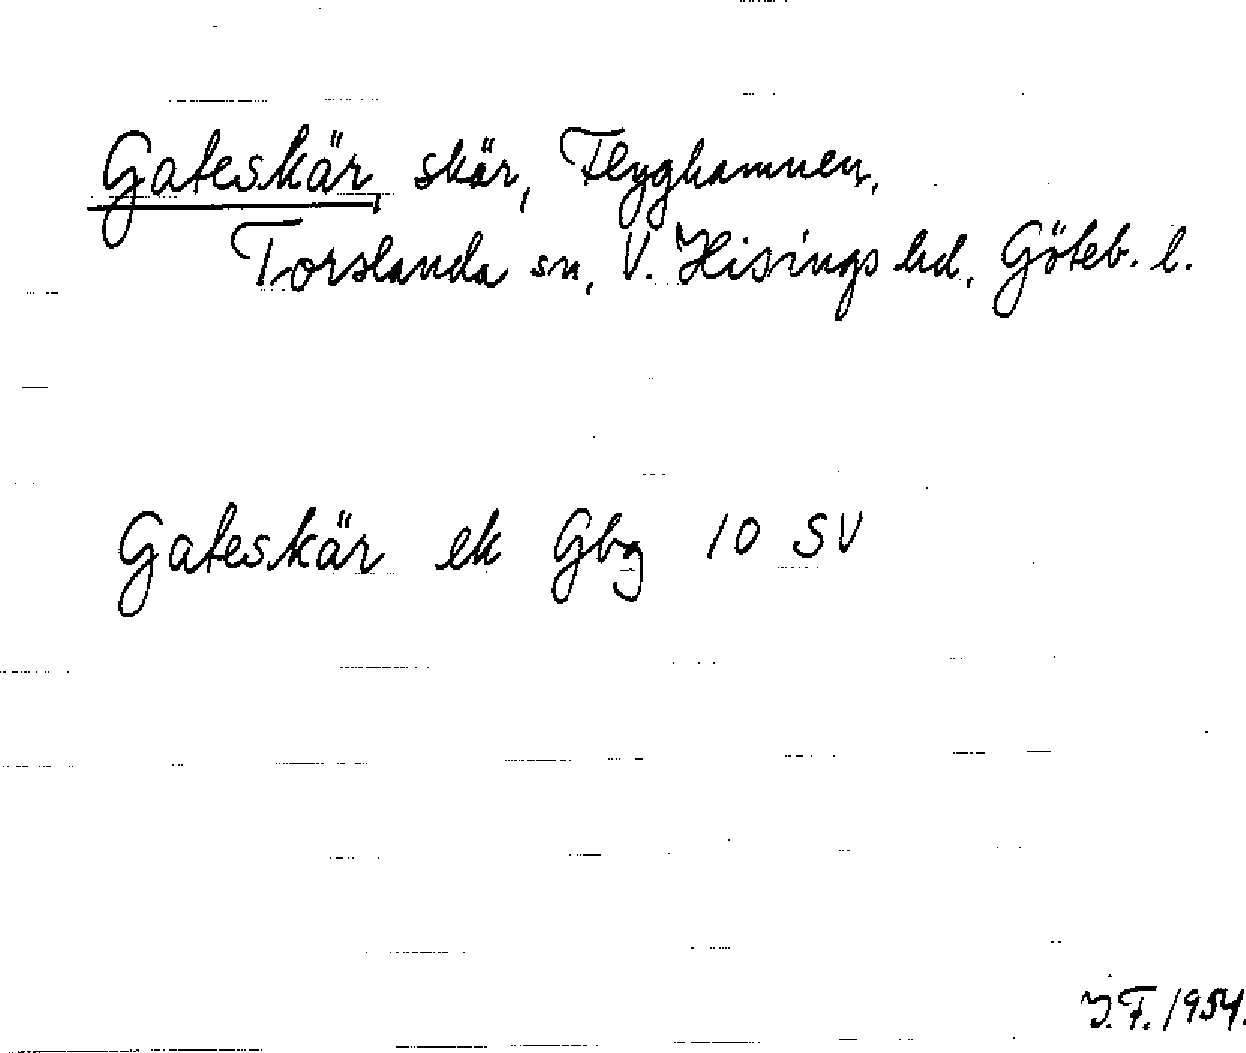 Gateskär, skär, Flyghamnen,
Torslanda sn, V. Hisings hd, Göteb. l.
Gateskär ek Gbg 10 SV
I.F. 1954.